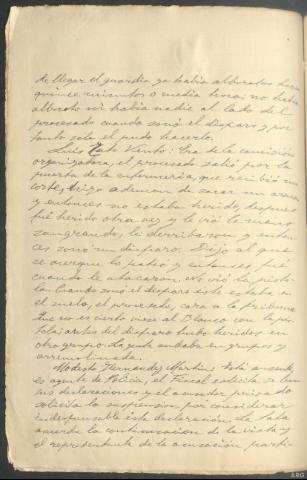 de llegar el guardia ya había alboroto hacia
quince minutos o media hora; no había
alboroto ni había nadie al lado del
procesado cuando sonó el disparo y por
tanto sólo él pudo hacerlo.
Luis Kento: Era de la comisión
organizadora, el procesado salió por la
puerta de la enfermería, que recibió un
corte, hizo ademán de sacar un arma
y entonces no estaba herido, después
fué herido otra vez y le vió la mano
sangrando, le derribaron y enton-
ces sonó un disparo. Dijo al que
se acerque lo pateó y entonces fué
cuando le atacaron. No vió la pisto-
la. Cuando sonó el disparo éste estaba en
el suelo, el procesado, cara a la tribuna
Que no es cierto viese al Blanco con la pis-
tola; antes del disparo hubo heridos en
otro grupo. La gente andaba en grupos y
arremolinada.
Modesto Hernandez Martin: Está ausente
es agente de Policía, el Fiscal solicita se lean
sus declaraciones y el acusador privado
solicita la suspensión por considerar
indispensable ésta declaración, la Sala
acuerda la continuación de la vista y
el representante de la acusación parti-
ARG